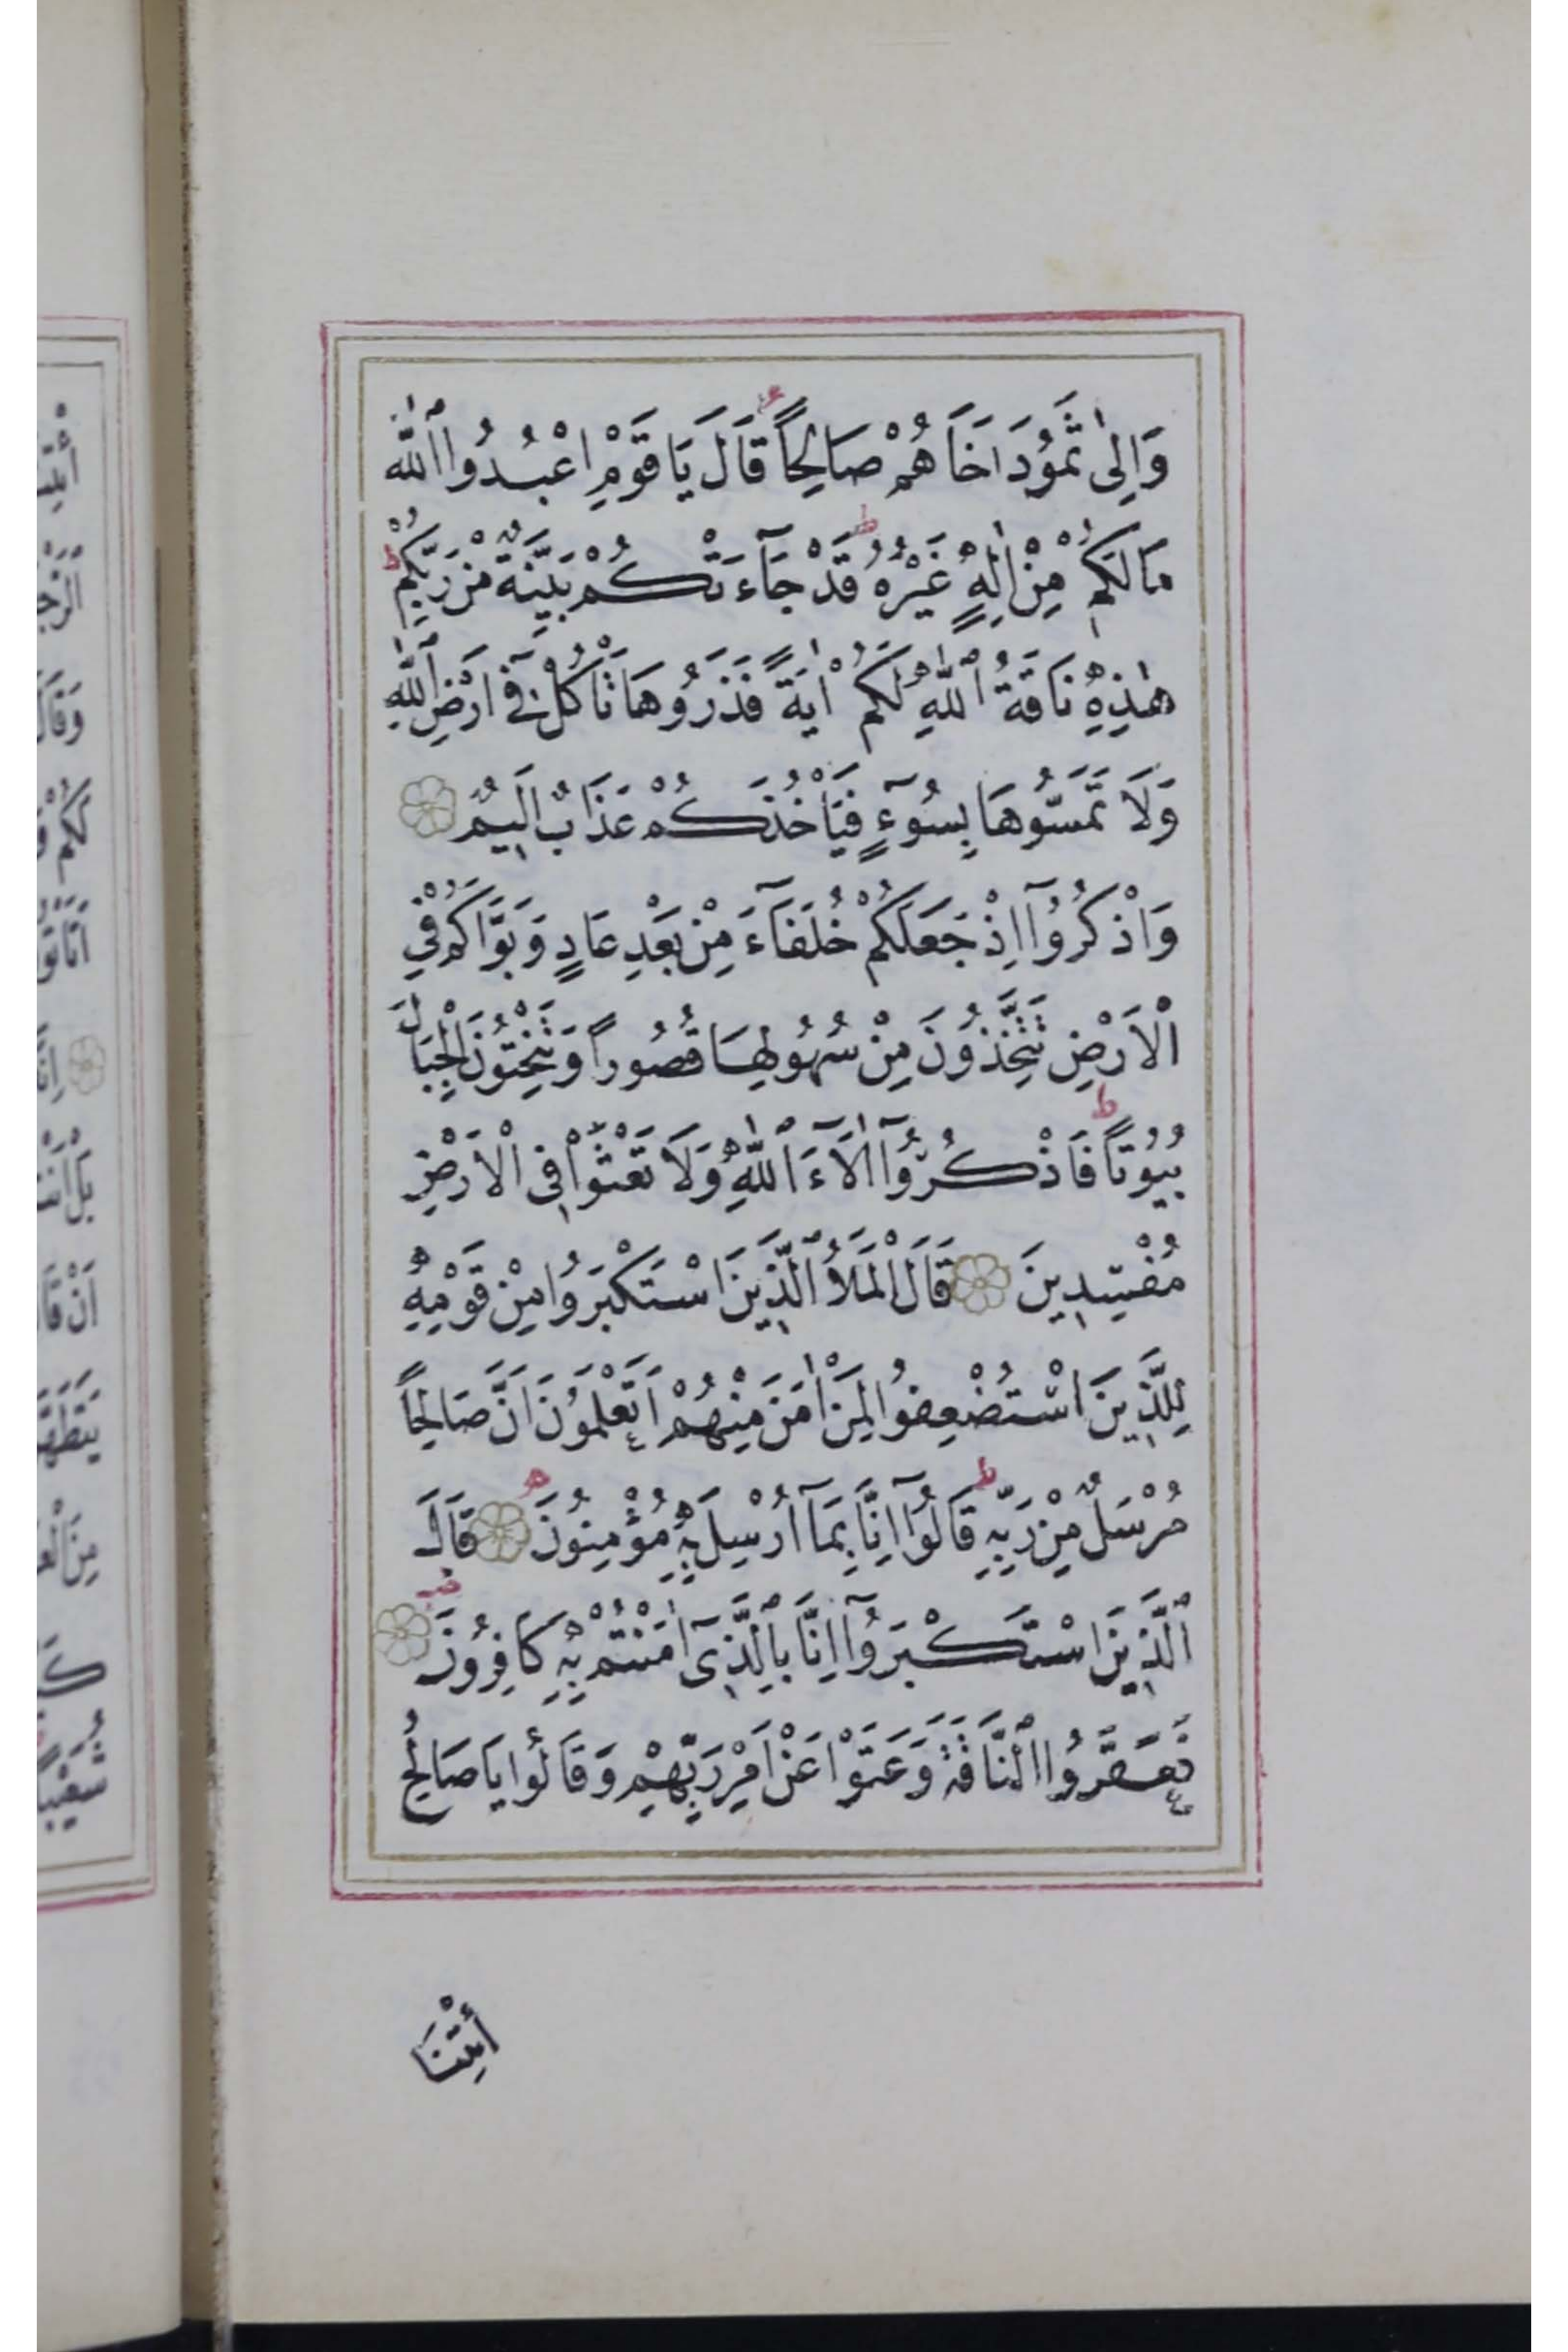 وَاِلٰى ثَمُودَ اَخَاهُمْ صَالِحاًۢ قَالَ يَا قَوْمِ اعْبُدُوا اللّٰهَ
مَا لَكُمْ مِنْ اِلٰهٍ غَيْرُهُۜ قَدْ جَٓاءَتْكُمْ بَيِّنَةٌ مِنْ رَبِّكُمْۜ
هٰذِهِ نَاقَةُ اللّٰهِ لَكُمْ اٰيَةً فَذَرُوهَا تَأْكُلْ فِٓي اَرْضِ اللّٰهِ
وَلَا تَمَسُّوهَا بِسُٓوءٍ فَيَأْخُذَكُمْ عَذَابٌ اَلِيمٌ
وَاذْكُرُٓوا اِذْ جَعَلَكُمْ خُلَفَٓاءَ مِنْ بَعْدِ عَادٍ وَبَوَّاَكُمْ فِي
الْاَرْضِ تَتَّخِذُونَ مِنْ سُهُولِهَا قُصُوراً وَتَنْحِتُونَ الْجِبَالَ
بُيُوتاًۜ فَاذْكُرُٓوا اٰلَٓاءَ اللّٰهِ وَلَا تَعْثَوْا فِي الْاَرْضِ
مُفْسِدِينَ قَالَ الْمَلَاُ الَّذِينَ اسْتَكْبَرُوا مِنْ قَوْمِهِ
لِلَّذِينَ اسْتُضْعِفُوا لِمَنْ اٰمَنَ مِنْهُمْ اَتَعْلَمُونَ اَنَّ صَالِحاً
مُرْسَلٌ مِنْ رَبِّهِۜ قَالُٓوا اِنَّا بِمَٓا اُرْسِلَ بِهِ مُؤْمِنُونَ قَالَ
الَّذِينَ اسْتَكْبَرُٓوا اِنَّا بِالَّذِٓي اٰمَنْتُمْ بِهِ كَافِرُونَ
فَعَقَرُوا النَّاقَةَ وَعَتَوْا عَنْ اَمْرِ رَبِّهِمْ وَقَالُوا يَا صَالِحُ
ائْتِنَا